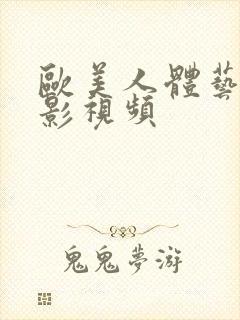 歐美人體藝
影視頻
鬼鬼夢游